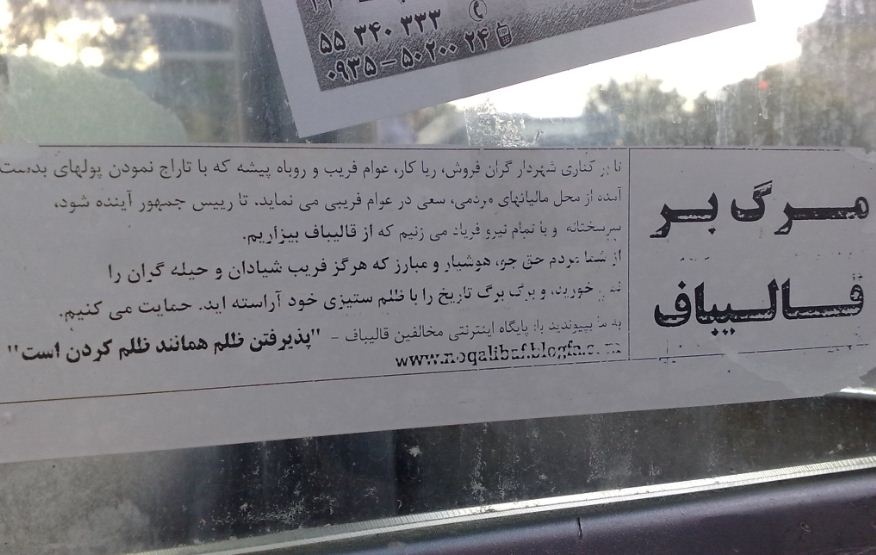 ۵۵ ۳۴۰ ۳۳۳
۰۹۳۵ – ۵۰۲۰۰ ۲۴
مرگ بر
قالیباف
تا بر کناری شهردار گران فروش، ریا کار، عوام فریب و روباه پیشه که با تاراج نمودن پولهای بدست
آمده از محل مالیاتهای مردمی، سعی در عوام فریبی می نماید. تا رییس جمهور آینده شود،
سرسختانه و با تمام نیرو فریاد می زنیم که از قالیباف بیزاریم.
از شما مردم حق جو، هوشیار و مبارز که هرگز فریب شیادان و حیله گران را
خورید، و برگ برگ تاریخ را با ظلم ستیزی خود آراسته اید. حمایت می کنیم.
به ما بپیوندید با: پایگاه اینترنتی مخالفین قالیباف - "پذیرفتن ظلم همانند ظلم کردن است"
www.noqalibaf.blogfa.com